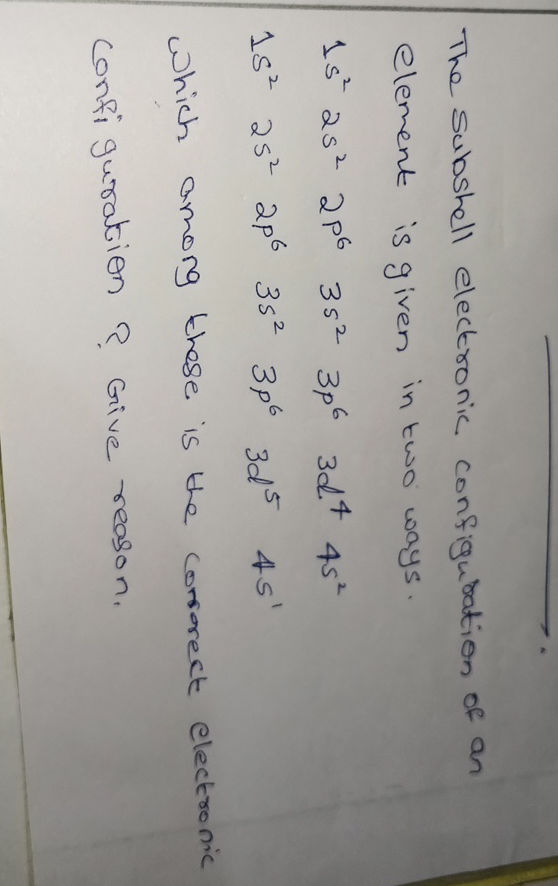 The Subshell electronic configuration of an
element is given in two ways.
1s² 2s² 2p⁶ 3s² 3p⁶ 3d⁴ 4s²
1s² 2s² 2p⁶ 3s² 3p⁶ 3d⁵ 4s¹
Which among these is the correct electronic
Configuration ? Give reason.